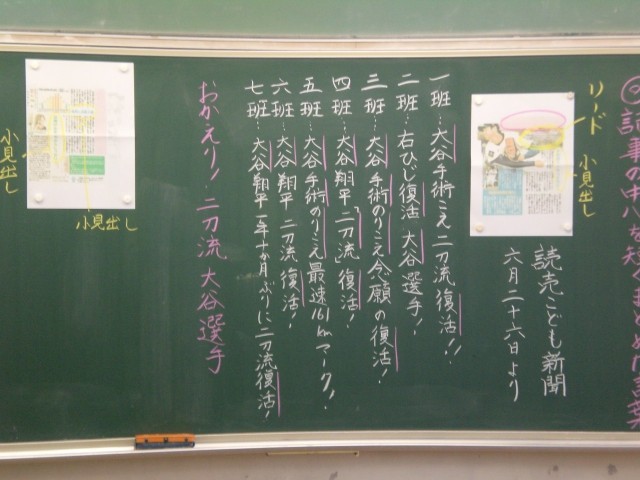 リード
小見出し
読売こども新聞
六月二十六日より
一班…大谷手術こえ二刀流復活!!
二班…右ひじ復活 大谷選手!
三班…大谷手術のりこえ念願の復活!
四班…大谷翔平「二刀流」復活!
五班…大谷手術のりこえ最速161kmマーク!
六班…大谷翔平 二刀流 復活!
七班…大谷翔平一年十か月ぶりに二刀流復活!
おかえり!二刀流 大谷選手
小見出し
小見出し